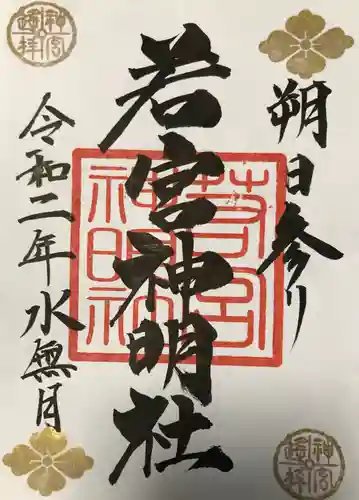 朔日参り
若宮神明社
令和二年水無月
若宮
神明社
神宮
遙拝
神宮
遙拝